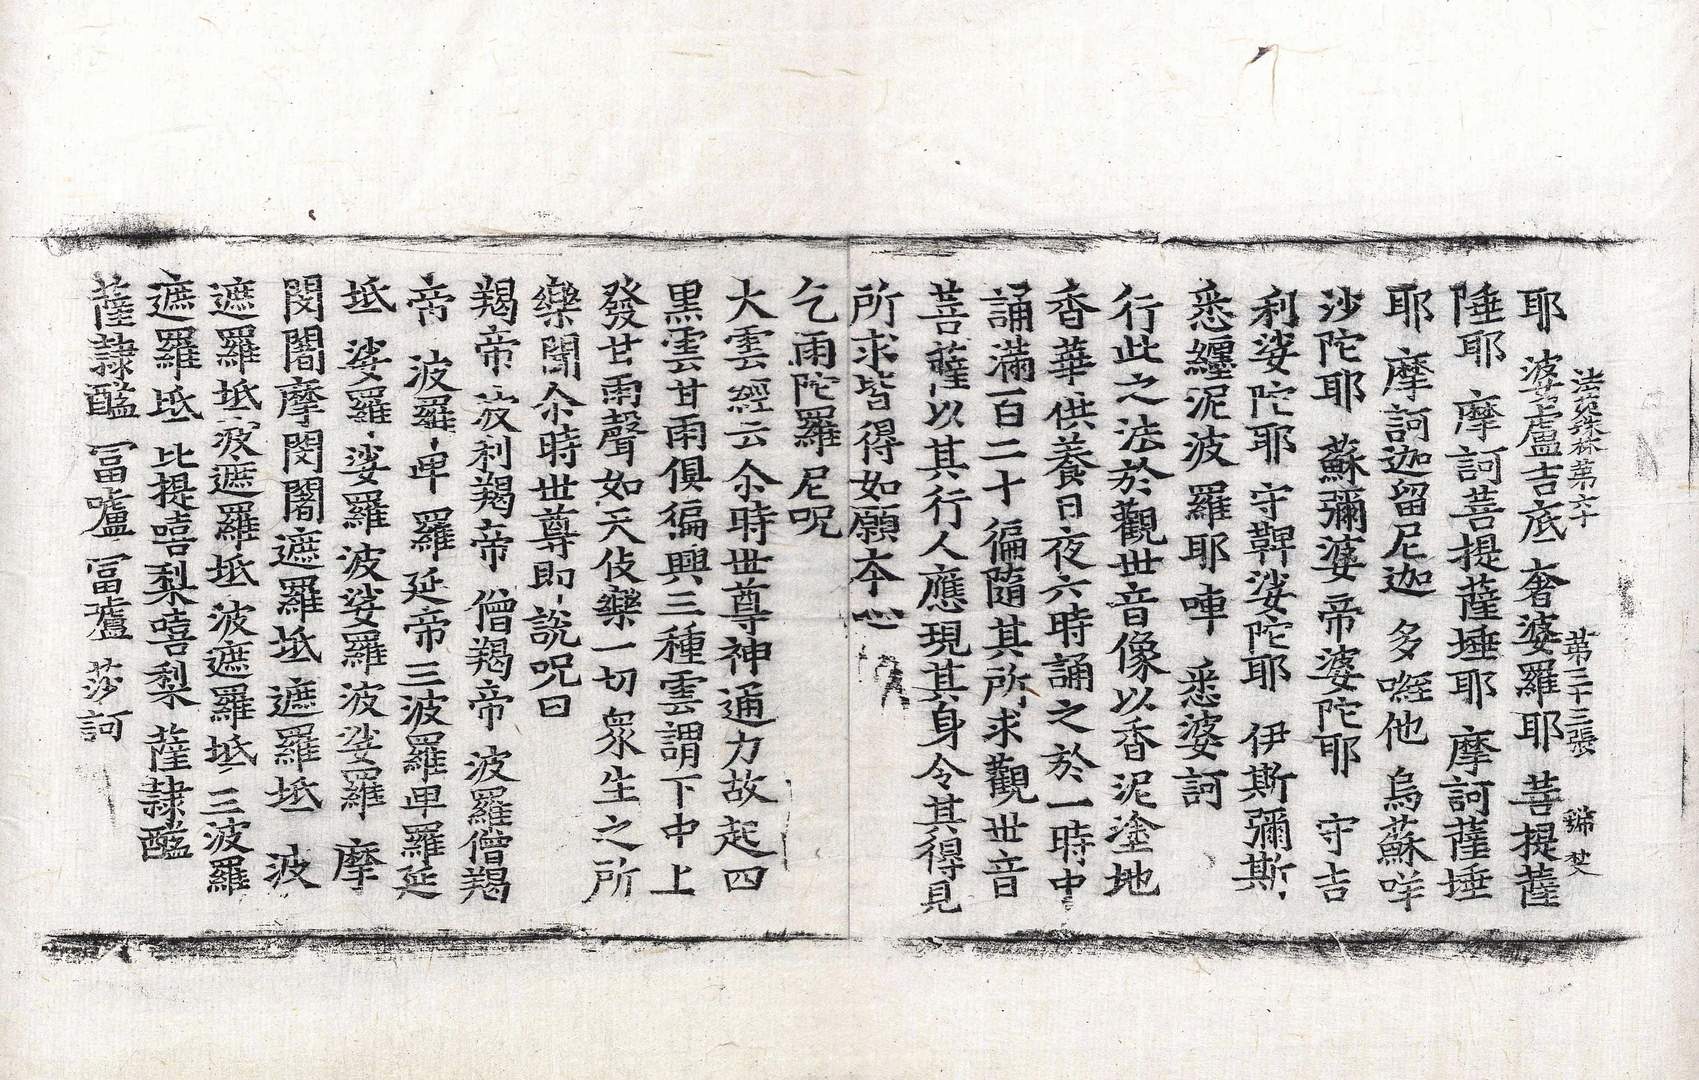 法苑珠林第六十 第三十三張 㹅
耶 婆盧吉底 奢婆羅耶 菩提薩
埵耶 摩訶菩提薩埵耶 摩訶薩埵
耶 摩訶迦留尼迦 多咥他 烏蘇咩
沙陀耶 蘇彌婆帝婆陀耶 守吉
利娑陀耶 守鞞娑陀耶 伊斯彌斯
悉纏泥波羅耶 㖿 悉婆訶
行此之法於觀世音像以香泥塗地
香華供養日夜六時誦之於一時中
誦滿一百二十徧隨其所求觀世音
菩薩以其行人應現其身令其得見
所求皆得如願本心
乞雨陀羅尼呪
大雲經云尒時世尊神通力故起四
黑雲甘雨俱徧興三種雲謂下中上
發甘雨聲如天伎樂一切衆生之所
樂聞尒時世尊即說呪曰
羯帝 波利羯帝 僧羯帝 波羅僧羯
帝 波羅卑羅延帝三波羅卑羅延
坻 娑羅娑羅波娑羅波娑羅 摩
閔闍摩閔闍遮羅坻遮羅坻 波
遮羅坻波遮羅坻波遮羅坻三波羅
遮羅坻比提嘻梨嘻梨 薩隸醯
薩隸醯 冨嚧冨嚧 莎訶